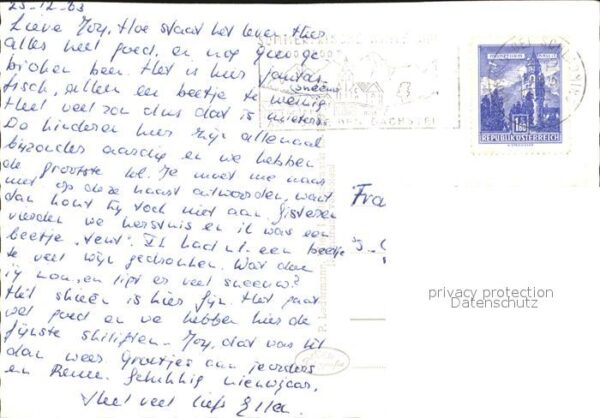 25-12-63
Lieve Joy, Hoe staat het leven. Hier
alles heel goed, en nog geen ge-
broken been. Het is hier fantas-
tisch, alleen een beetje te weinig sneeuw
Heel veel zon dus dat is
De kinderen hier zijn allemaal
bijzonder aardig en we hebben
de grootste lol. Je moet me maar
niet op deze kaart antwoorden, want
dan komt hij toch niet aan. Gisteren
vierden we kerstmis en ik was een
beetje „teut". Ik had n.l. een beetje
te veel wijn gedronken. Wat doen
jij nou, en ligt er veel sneeuw?
Het skieën is hier fijn. Het gaat
wel goed en we hebben hier de
fijnste skiliften. Joy, dat was het
dan weer. Groetjes aan je ouders
en Gelukkig nieuwjaar,
Heel veel liefs Ellen.
DACHSTEIN
1.50
REPUBLIK ÖSTERREICH
Fra
privacy protection
Datenschutz